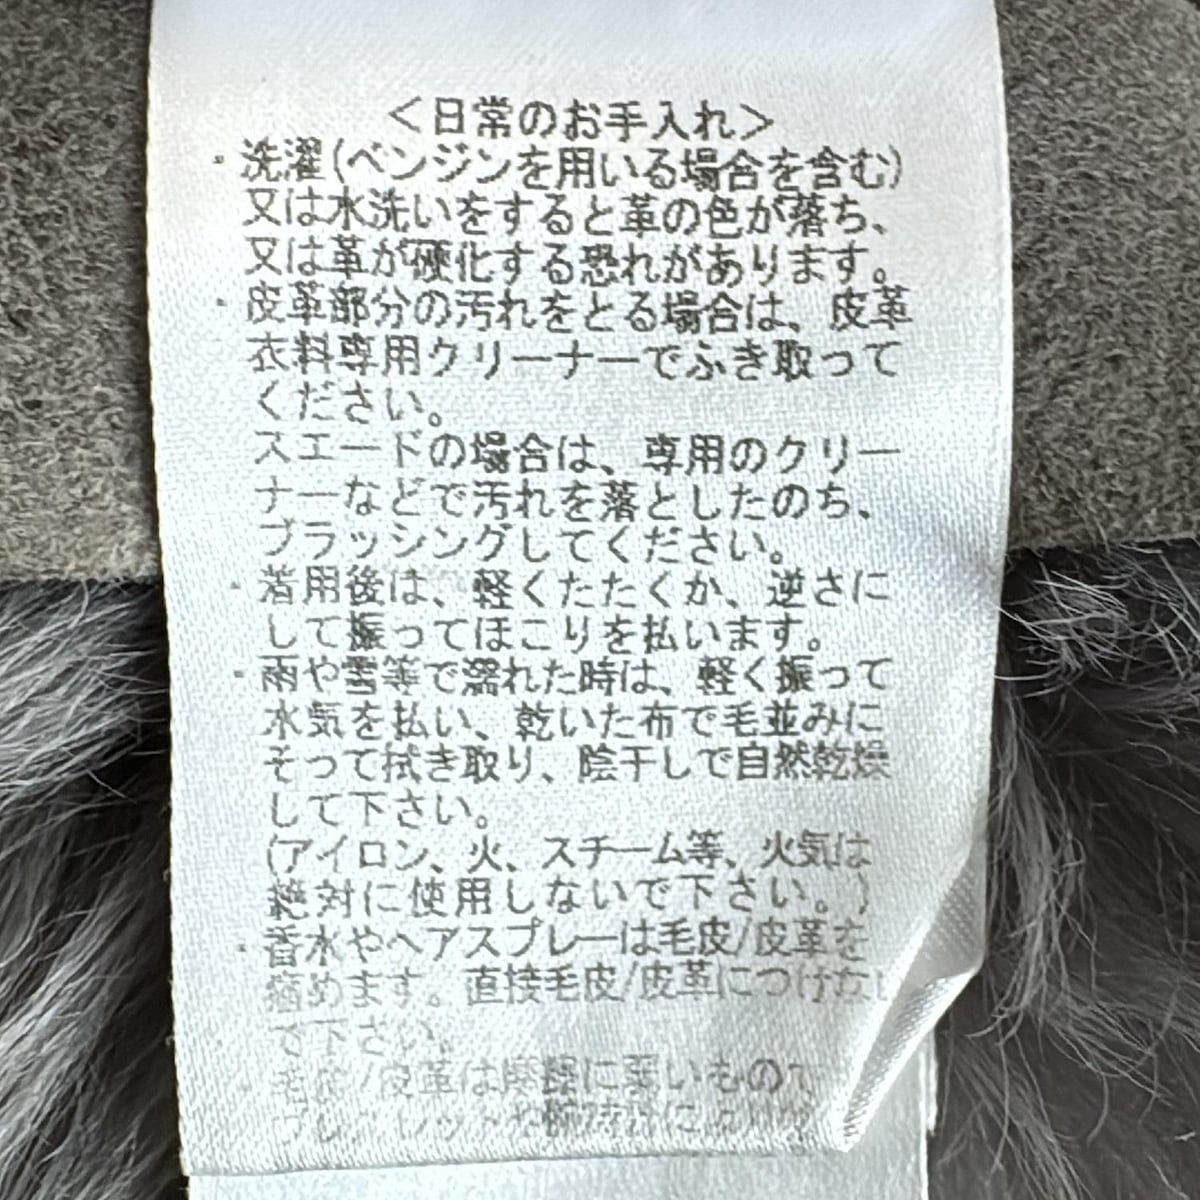 ＜日常のお手入れ＞
・洗濯(ベンジンを用いる場合を含む)
又は水洗いをすると革の色が落ち、
又は革が硬化する恐れがあります。
・皮革部分の汚れをとる場合は、皮革
衣料専用クリーナーでふき取って
ください。
スエードの場合は、専用のクリー
ナーなどで汚れを落としたのち、
ブラッシングしてください。
・着用後は、軽くたたくか、逆さに
して振ってほこりを払います。
・雨や雪等で濡れた時は、軽く振って
水気を払い、乾いた布で毛並みに
そって拭き取り、陰干しで自然乾燥
して下さい。
(アイロン、火、スチーム等、火気は
絶対に使用しないで下さい。)
・香水やヘアスプレーは毛皮/皮革を
痛めます。直接毛皮/皮革につけない
で下さい。
・毛皮/皮革は摩擦に弱いもので
ブレスレットや腕時計により